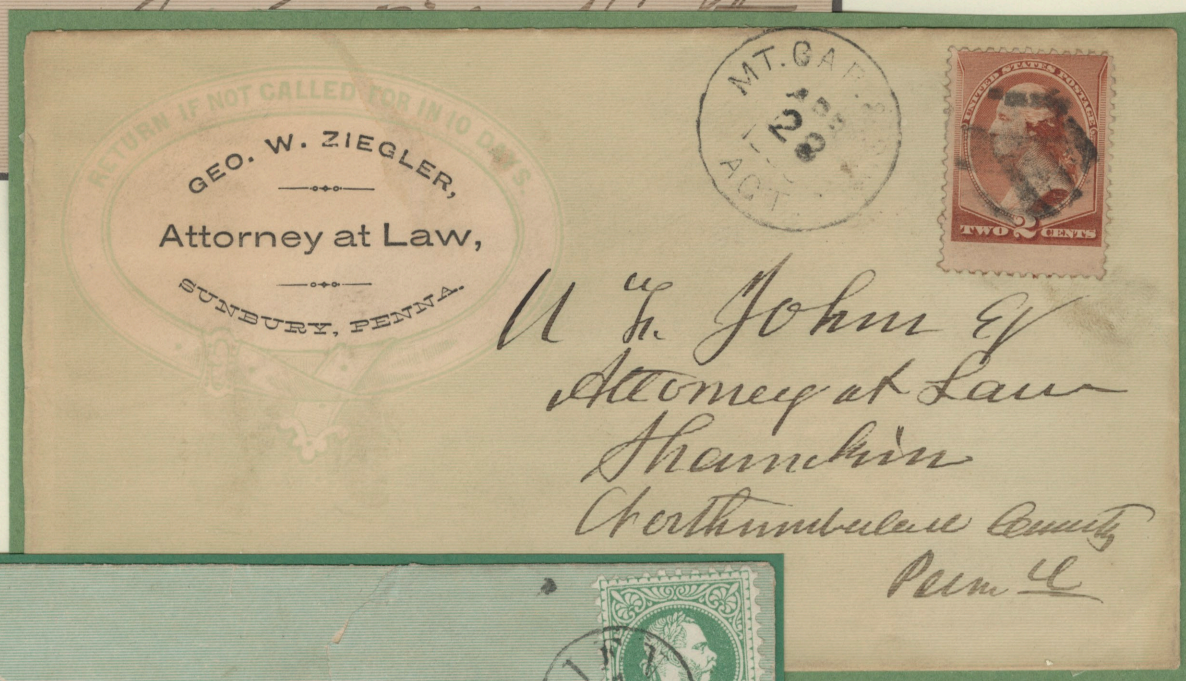 RETURN IF NOT CALLED FOR IN 10 DAYS.
GEO. W. ZIEGLER,
Attorney at Law,
SUNBURY, PENNA.
MT. CAR
APR
22
AGT
UNITED STATES POSTAGE
TWO 2 CENTS
John Esq
Attorney at Law
Shamokin
Northumberland County
Penn